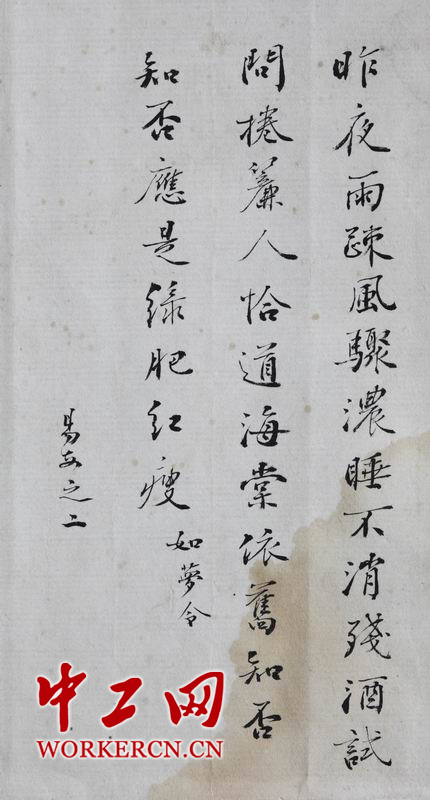 昨夜雨踈風驟濃睡不消殘酒試
問捲簾人恰道海棠依舊知否
知否應是綠肥紅瘦
如夢令
易安之二
中工网
WORKERCN.CN